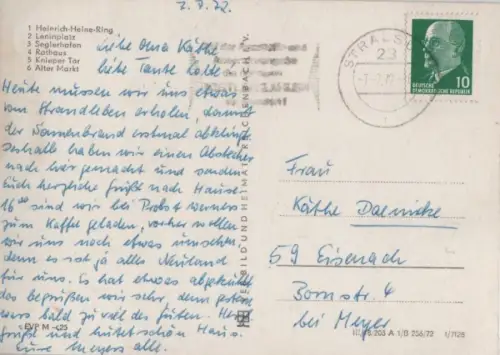 2.7.72.
1 Heinrich-Heine-Ring
2 Leninplatz
3 Seglerhafen
4 Rathaus
5 Knieper Tor
6 Alter Markt
Liebe Oma Käthe
liebe Tante
Heute müssen wir uns etwas
vom Strandleben erholen, damit
der Sonnenbrand erstmal abklingt
deshalb haben wir einen Abstecher
nach hier gemacht und senden
Euch herzliche Grüße nach Hause
16⁰⁰ sind wir bei Probst
zum Kaffee geladen, vorher wollen
wir uns noch etwas umsehen,
denn es ist ja alles Neuland
für uns. Es hat etwas abgekühlt
das begrüßen wir sehr, denn gestern
wars bald zu viel des
Grüße und hütet schön Haus.
Eure Meyers alle.
EVP M -,25
BILD UND HEIMAT REICHENBACH I. V.
STRALSUND
23
DEUTSCHE
DEMOKRATISCHE REPUBLIK
10
Frau
Käthe Daenicke
59 Eisenach
Bornstr. 4
bei Meyer
A 1/B 256/72